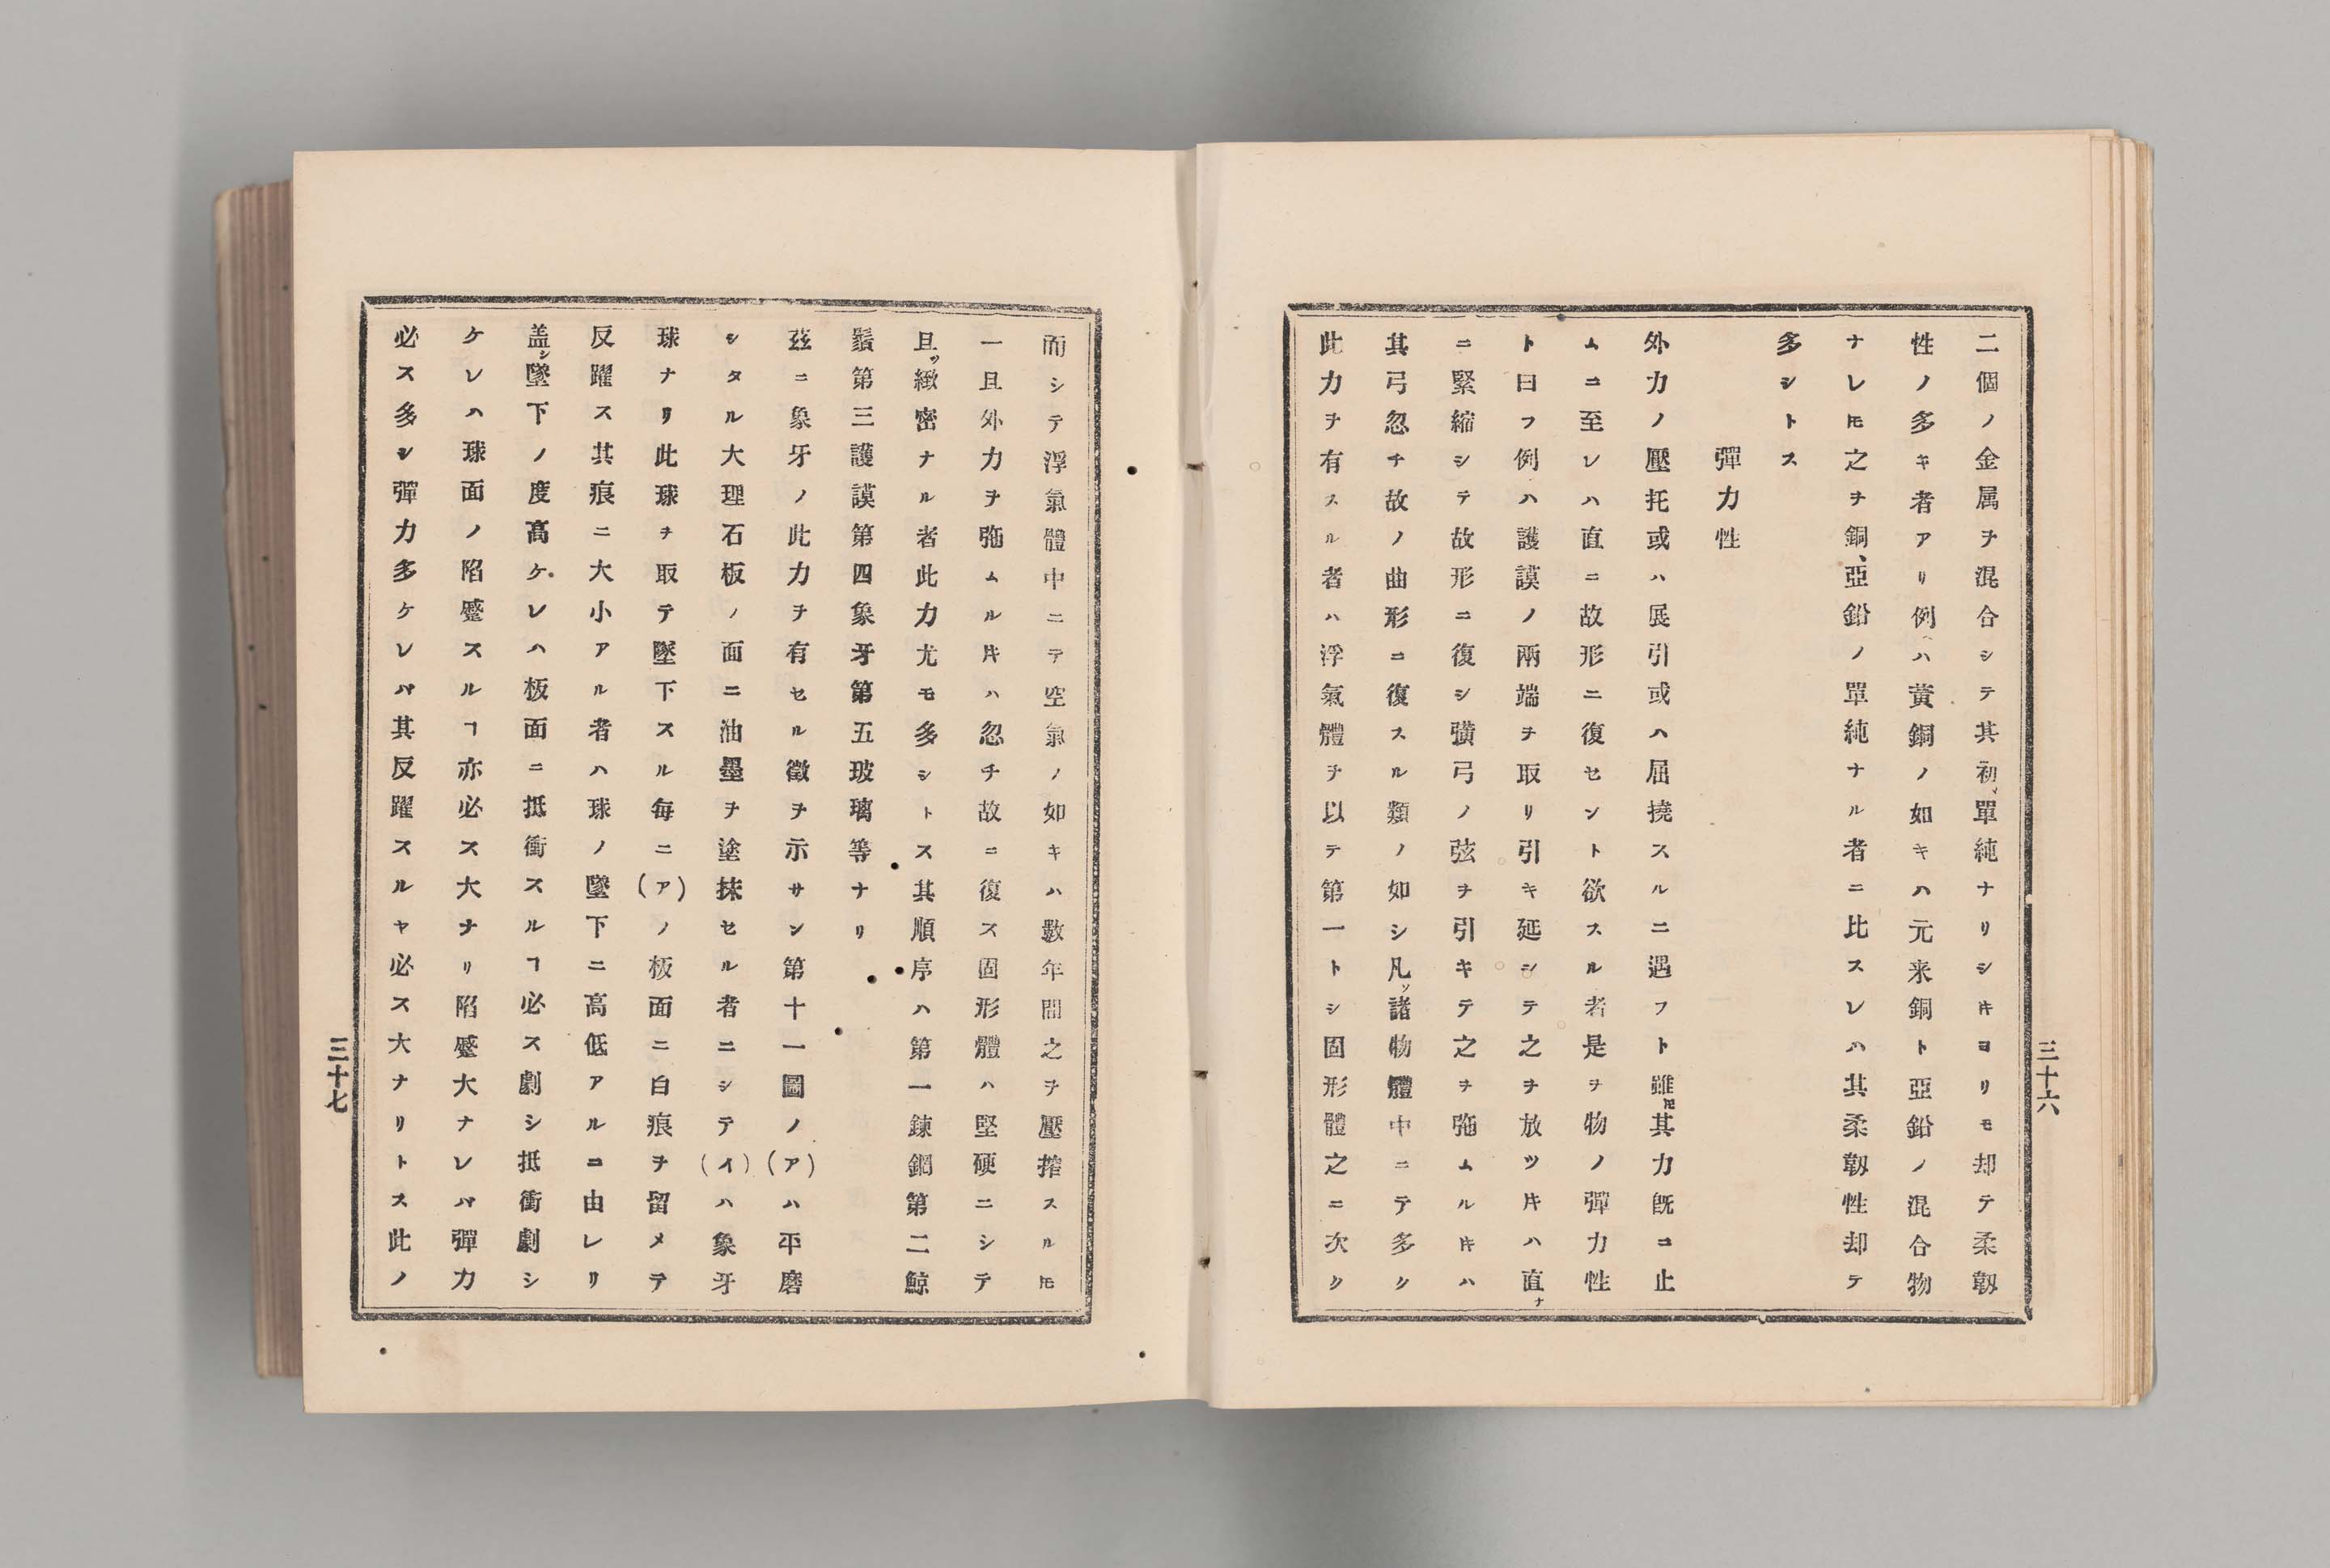 二個ノ金属ヲ混合シテ其初単純ナリシ𪜈ヨリモ却テ柔靱
性ノ多キ者アリ例ハ黄銅ノ如キハ元来銅ト亞鉛ノ混合物
ナレ𪜈之ヲ銅、亞鉛ノ單純ナル者ニ比スレハ其柔靱性却テ
多シトス
彈力性
外力ノ壓托或ハ展引或ハ屈撓スルニ遇フト雖𪜈其力既ニ止
ムニ至レハ直ニ故形ニ復セント欲スル者是ヲ物ノ彈力性
ト曰フ例ハ護謨ノ兩端ヲ取リ引キ延シテ之ヲ放ツ𬼀ハ直ナ
ニ緊縮シテ故形ニ復シ彉弓ノ弦ヲ引キテ之ヲ弛ムル𬼀ハ
其弓忽チ故ノ曲形ニ復スル類ノ如シ凡ソ諸物體中ニテ多ク
此力ヲ有スル者ハ浮氣體ヲ以テ第一トシ固形體之ニ次ク
三十六
而シテ浮氣體中ニテ空氣ノ如キハ數年間之ヲ壓搾スル𪜈
一旦外力ヲ弛ムル𬼀ハ忽チ故ニ復ス固形體ハ堅硬ニシテ
且ツ緻密ナル者此力尤モ多シトス其順序ハ第一鍊鋼第二鯨
鬚第三護謨第四象牙第五玻璃等ナリ
玆ニ象牙ノ此力ヲ有セル徵ヲ示サン第十一圖ノ(ア)ハ平磨
シタル大理石板ノ面ニ油墨ヲ塗抹セル者ニシテ(イ)ハ象牙
球ナリ此球ヲ取テ墜下スル毎ニ(ア)ノ板面ニ白痕ヲ留メテ
反躍ス其痕ニ大小アル者ハ球ノ墜下ニ高低アルニ由レリ
盖シ墜下ノ度高ケレハ板面ニ抵衝スルヿ必ス劇シ抵衝劇シ
ケレハ球面ノ陷蹙スルヿ亦必ス大ナリ陷蹙大ナレバ彈力
必ス多シ彈力多ケレバ其反躍スルヤ必ス大ナリトス此ノ
三十七